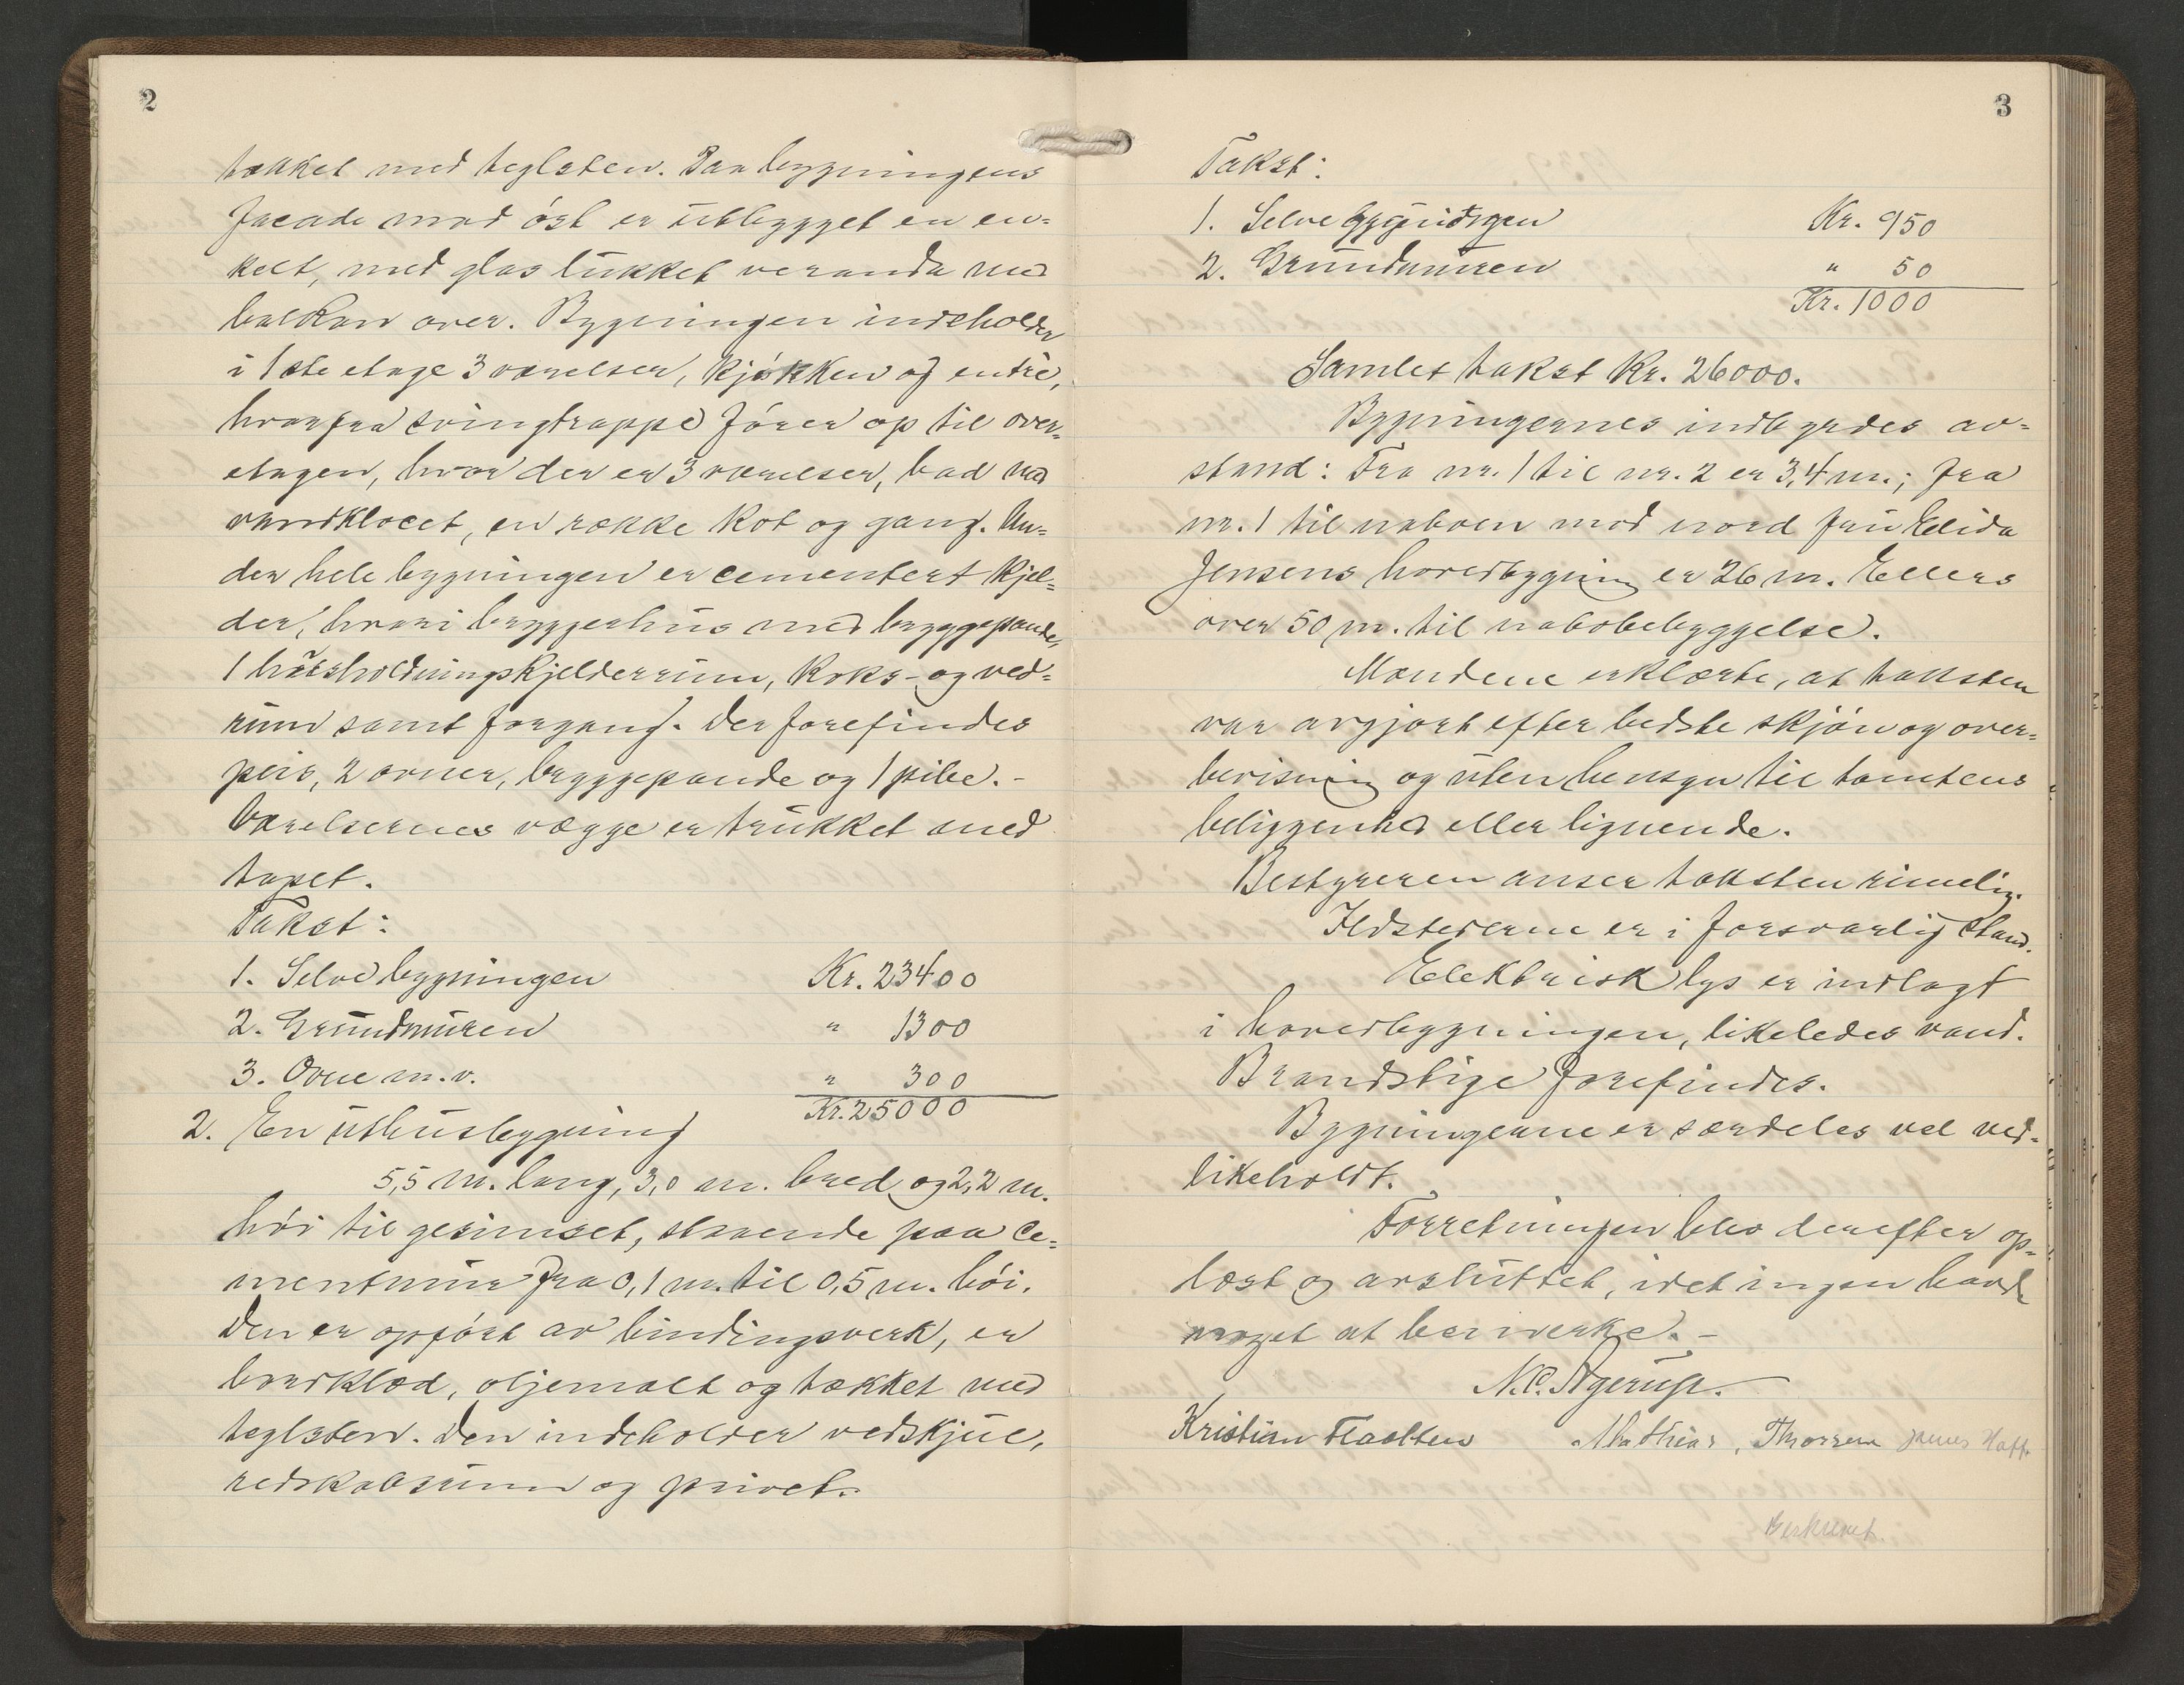 2
takket med teglsten. Paa bygningens
facade mod øst er utbygget en en-
kelt, med glas lukket veranda med
balkon over. Bygningen indeholder
i 1ste etage 3 værelser, kjøkken og entré,
hvorfra svingtrappe fører op til over-
etagen, hvor der er 3 værelser, bad med
vandklocet, en række kot og gang. Un-
der hele bygningen er cementert kjel-
der, hvori bryggerhus med bryggepande,
1 husholdningskjelderrum, koks- og ved-
rum samt forgang. Der forefindes
peis, 2 ovner, bryggepande og 1 pibe.-
Værelsernes vægge er trukket med
tapet.
Takst:
1. Selve bygningen Kr. 23400
2. Grundmuren " 1300
3. Ovne m.v. " 300
Kr. 25000
2. En uthusbygning
5,5 m. lang, 3,0 m. bred og 2,2 m.
høi til gesimset, staaende paa ce-
mentmur fra 0,1 m. til 0,5 m. høi.
Den er opført av bindingsverk, er
bordklæd, oljemalt og tækket med
teglsten. Den indeholder vedskjul,
redskabsrum og privet.
3
Takst:
1. Selve bygningen Kr. 950
2. Grundmuren " 50
Kr. 1000
Samlet takst Kr. 26000.
Bygningernes indbyrdes av-
stand: Fra nr. 1 til nr. 2 er 3,4 m.; fra
nr. 1 til naboen mod nord fru Elida
Jensens hovedbygning er 26 m. Ellers
over 50 m. til nabobebyggelse.
Mændene erklærte, at taksten
var avgjort efter bedste skjøn og over-
bevisning og uten hensyn til tomtens
beliggenhed eller lignende.
Bestyreren anser taksten rimelig.
Ildstederne er i forsvarlig stand.
Elektrisk lys er indlagt
i hovedbygningen, likeledes vand.
Brandstige forefindes.
Bygningerne er særdeles vel ved-
likeholdt.
Forretningen blev derefter op-
læst og avsluttet, idet ingen havde
noget at bemerke.-
N. C. Agerup.
Kristian Flaatten Mathias Thorsen
Beskrevet.